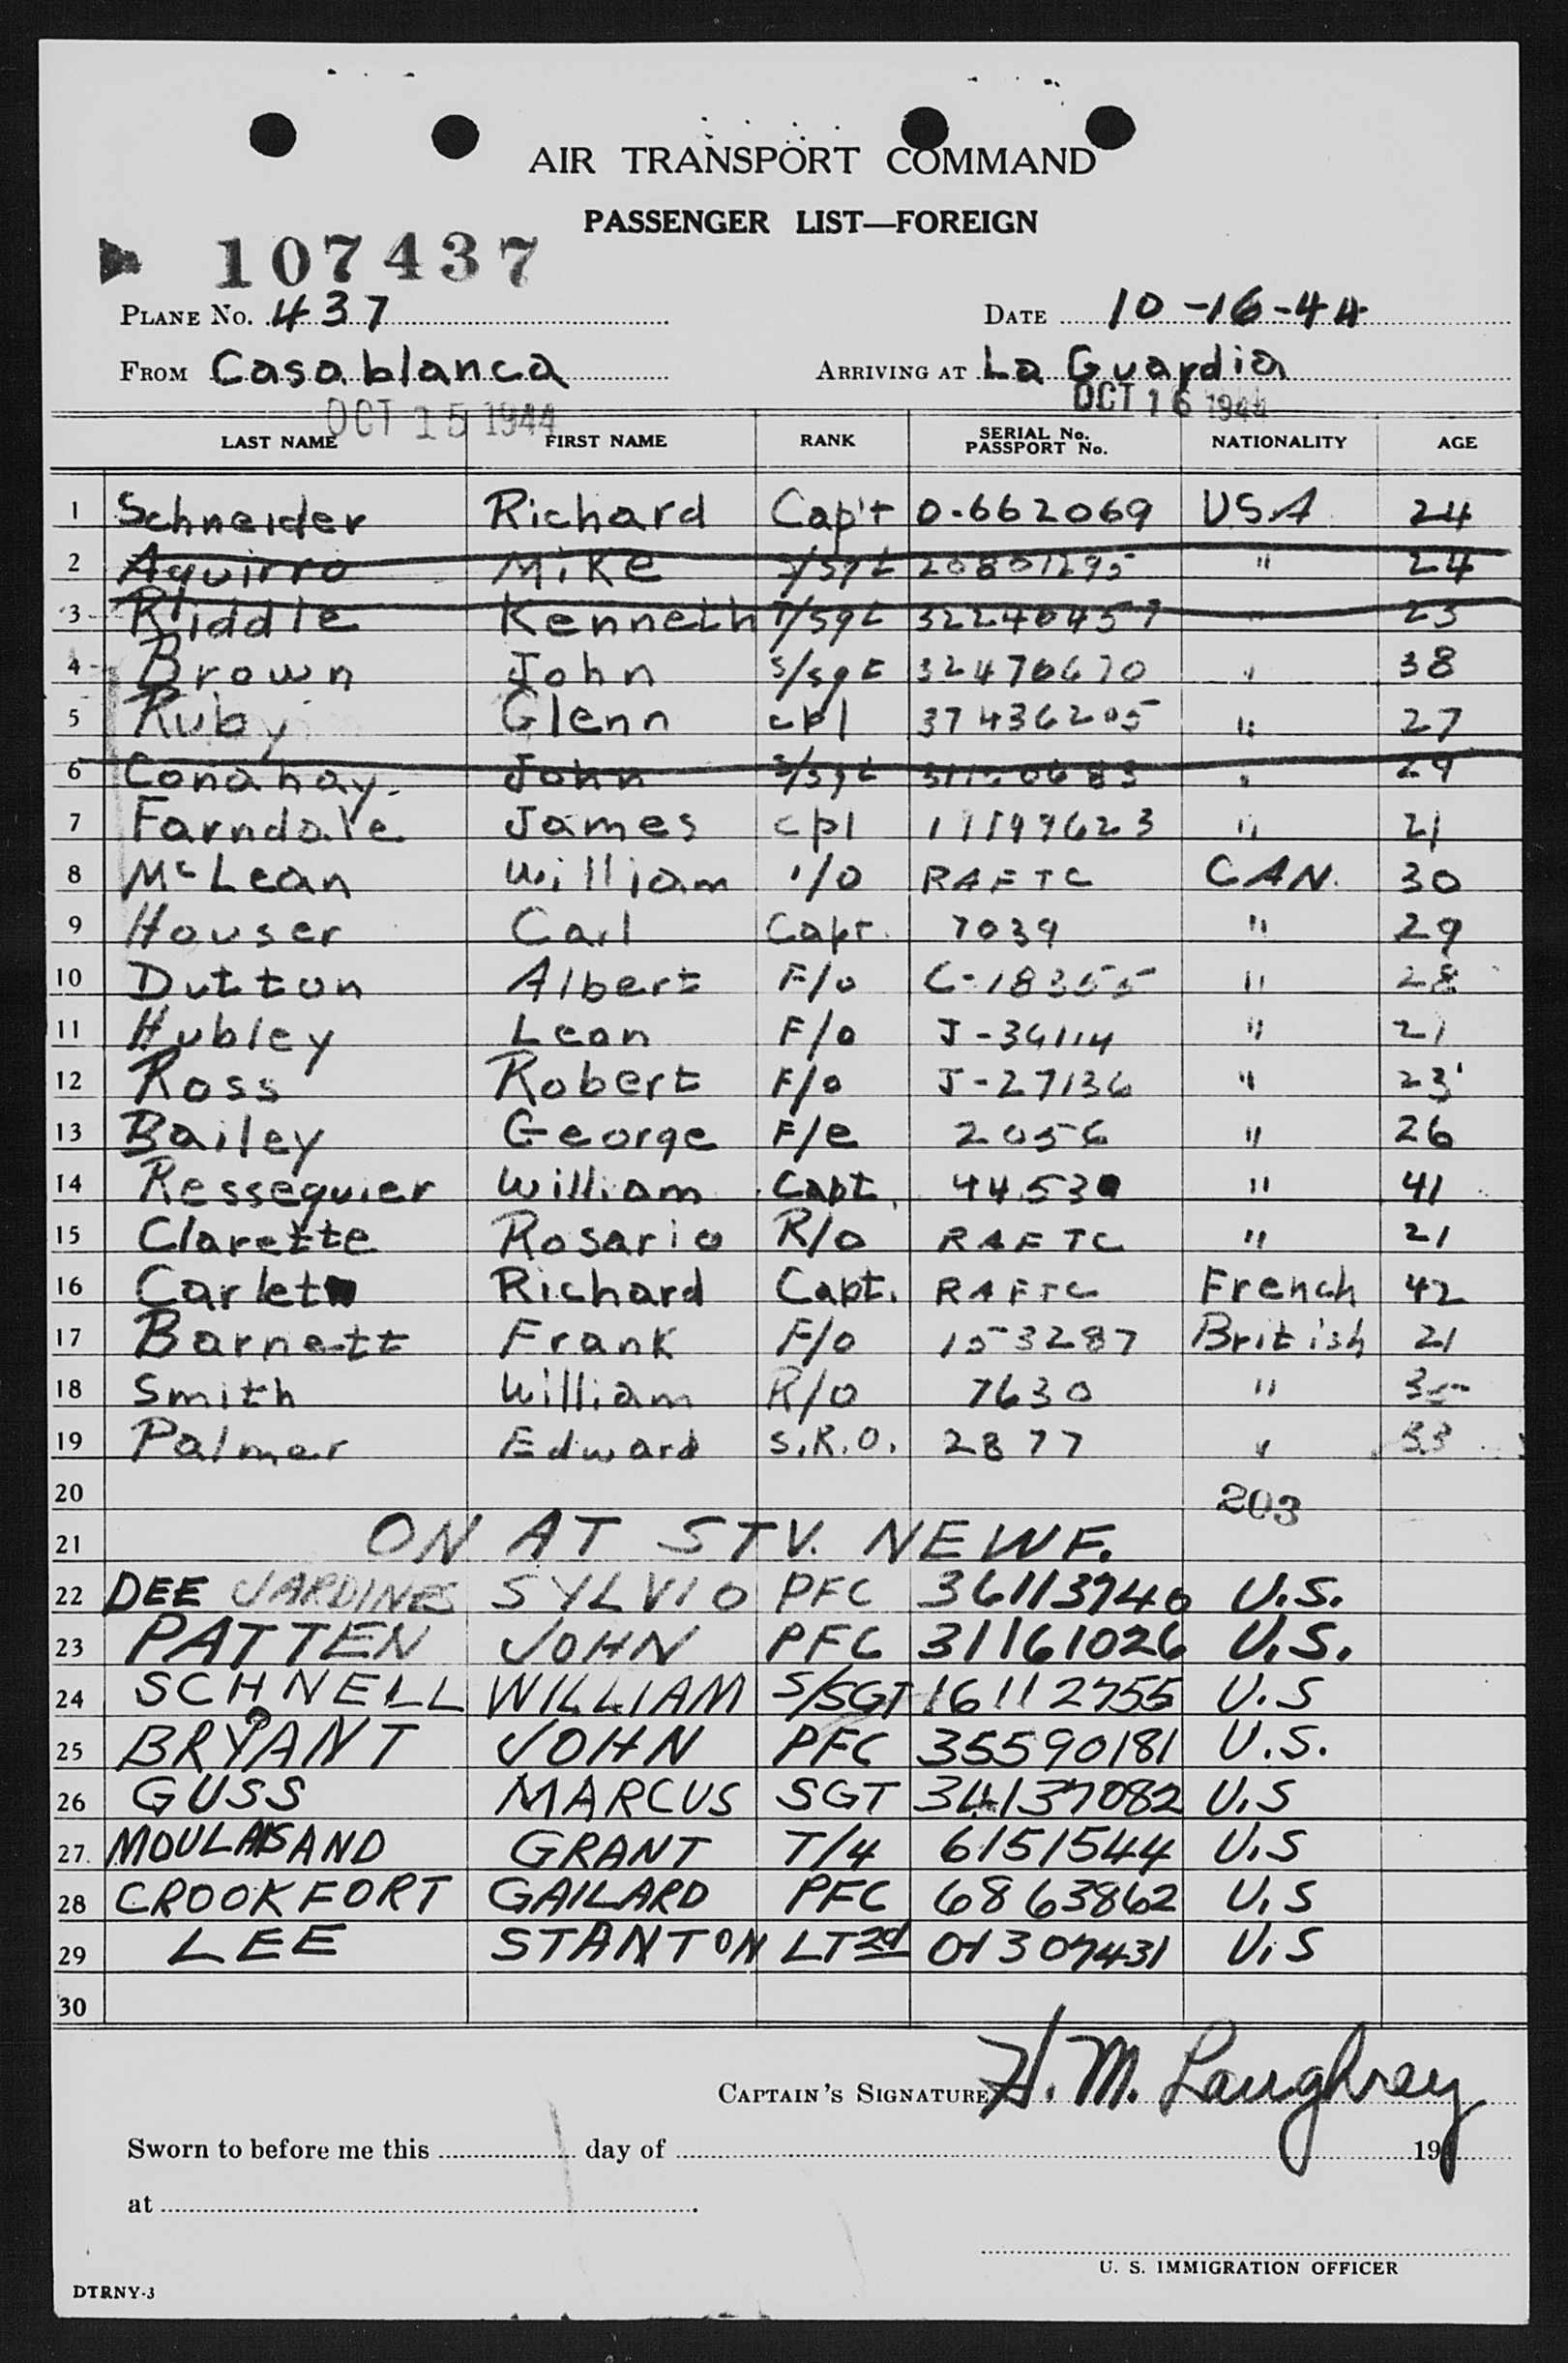 AIR TRANSPORT COMMAND
PASSENGER LIST—FOREIGN
107437
PLANE No. 437 DATE 10-16-44
FROM Casablanca ARRIVING AT La Guardia
OCT 15 1944 OCT 16 1944
LAST NAME FIRST NAME RANK SERIAL No. PASSPORT No. NATIONALITY AGE
1 Schneider Richard Cap't O-662069 USA 24
2 Aguirro Mike S/Sgt 20801295 " 24
3 Riddle Kenneth T/Sgt " 23
4 Brown John S/Sgt 32470670 " 38
5 Ruby Glenn cpl 37436205 " 27
6 Conahay. John S/Sgt " 29
7 Farndale James cpl 11199623 " 21
8 McLean William RAFTC CAN. 30
9 Houser Carl Capt. 7039 " 29
10 Dutton Albert F/O C-18355 " 28
11 Hubley Leon F/O " 21
12 Ross Robert F/O J-27136 " 23
13 Bailey George F/e 2056 " 26
14 Resseguier William Capt. " 41
15 Clarette Rosario R/O RAFTC " 21
16 Richard Capt. RAFTC French 42
17 Barnett Frank F/O 153287 British 21
18 Smith William R/O 7630 " 35
19 Palmer Edward S.R.O. 2877 " 33
20 203
21 ON AT STV. NEWF.
22 DEE JARDINES SYLVIO PFC 36113740 U.S.
23 PATTEN JOHN PFC 31161026 U.S.
24 SCHNELL WILLIAM S/SGT 16112755 U.S
25 BRYANT JOHN PFC 35590181 U.S.
26 GUSS MARCUS SGT 34137082 U.S
27. GRANT T/4 6151544 U.S
28 CROOKFORT GAILARD PFC 6863862 U.S
29 LEE STANTON LT 2d 01307431 U.S
30
CAPTAIN'S SIGNATURE H. M. Loughrey
Sworn to before me this day of 19
at .
U. S. IMMIGRATION OFFICER
DTRNY-3